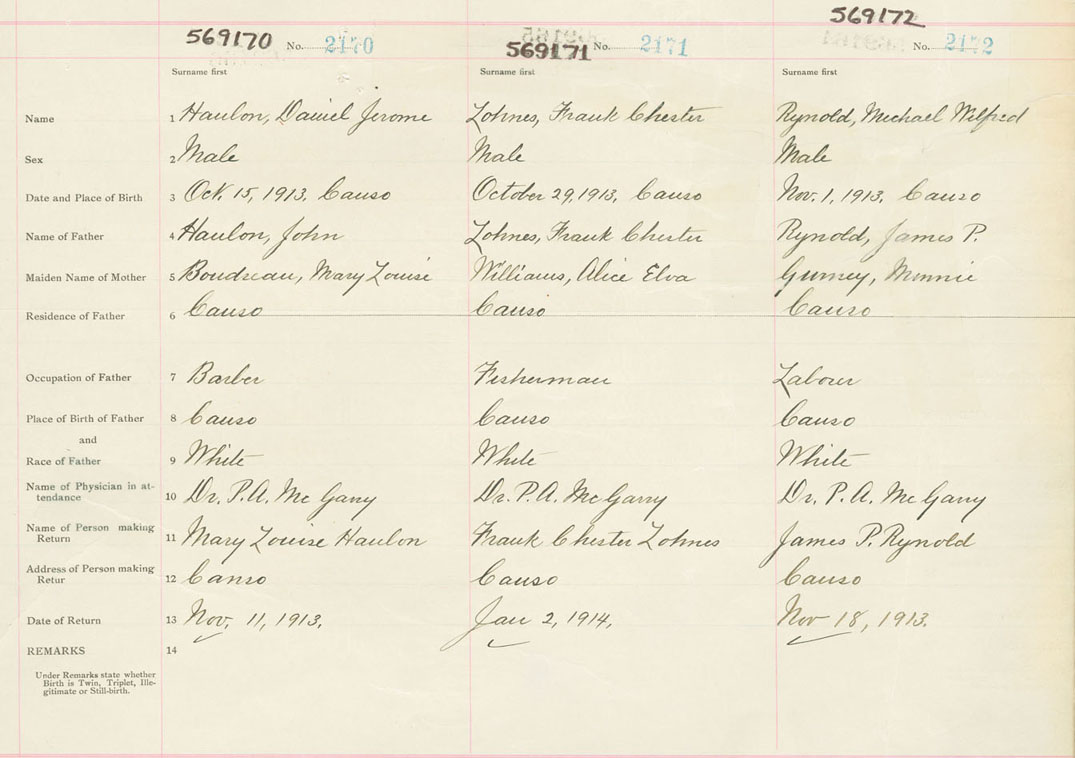 569172
569170 No. 2170 569171 No. 2171 No. 2172
Surname first Surname first Surname first
Name 1 Hanlon, Daniel Jerome Lohnes, Frank Chester Rynold, Michael Wilfred
Sex 2 Male Male Male
Date and Place of Birth 3 Oct. 15, 1913, Canso October 29, 1913, Canso Nov. 1, 1913, Canso
Name of Father 4 Hanlon, John Lohnes, Frank Chester Rynold, James P.
Maiden Name of Mother 5 Boudreau, Mary Louise Williams, Alice Elva Gurney, Minnie
Residence of Father 6 Canso Canso Canso
Occupation of Father 7 Barber Fisherman Labour
Place of Birth of Father 8 Canso Canso Canso
and
Race of Father 9 White White White
Name of Physician in at-
tendance 10 Dr. P.A. McGarry Dr. P.A. McGarry Dr. P.A. McGarry
Name of Person making
Return 11 Mary Louise Hanlon Frank Chester Lohnes James P. Rynold
Address of Person making
Retur 12 Canso Canso Canso
Date of Return 13 Nov. 11, 1913. Jan 2, 1914. Nov 18, 1913.
REMARKS 14
Under Remarks state whether
Birth is Twin, Triplet, Ille-
gitimate or Still-birth.